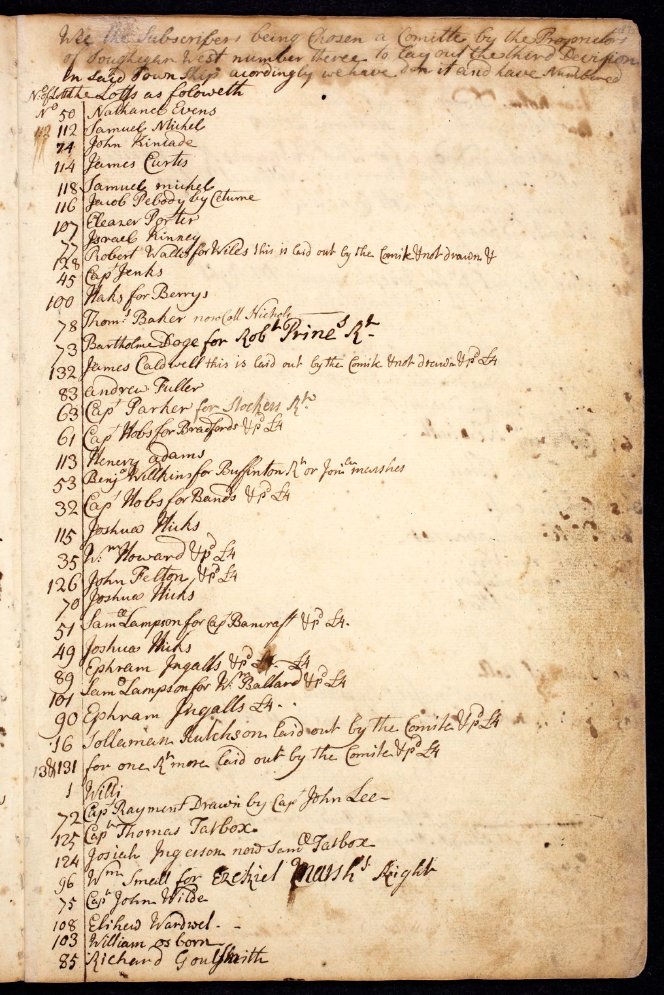 Wee the Subscribers being Chosen a Comitte by the Proprietors
of Souheghn West number three to Lay out the third Devision
In said Town Ship acordingly we have don it and have Numbered
No of Lots the Lotts as foloweth
No 50 Nathanel Evens
112 112 Samuel Michel
74 John Kincade
114 James Curtis
118 Samuel michel
116 Jacob Pebody by Ceturne
107 Eleazer Porter
77 Israel Kinney
128 Robert Walts for Wills this is laid out by the Comite & not drawn &
45 Capt Jenks
100 Haks for Berrys
78 Thoms Baker now Call Nichols
73 Bartholme Doge for Robt Prines Rt
132 James Caldwell this is laid out by the Comite & not drawn & pd £4
83 andrew Fuller
63 Capt Parker for Stockers Rt
61 Capt Hobs for Bradfords & pd £4
113 Henery adams
53 Benja Willkins for Buffinton Rt or Jonan marshes
32 Capt Hobs for Bands & pd £4
115 Joshua Hicks
35 Wm Howard & pd £4
126 John Felton & pd £4
70 Joshua Hicks
51 Samll Lampson for Capt Bancraft & pd £4.
49 Joshua Hicks
89 Ephram Ingalls & pd £4 £4
101 Samll Lampson for Wm Ballard & pd £4
90 Ephram Ingalls £4
16 Sollaman Hutchson laid out by the Comite & pd £4
138 131 for one Rt more laid out by the Comite & pd £4
1 Willi
72 Capt Rayment Drawn by Capt John Lee
125 Capt Thomas Tarbox
124 Josiah Ingerson now Samll Tarbox
96 Wm Small for Ezekiel Marshs Right
75 Capt John Wilde
108 Elihew Wardwel
103 William osborn
85 Richard Goulsmith